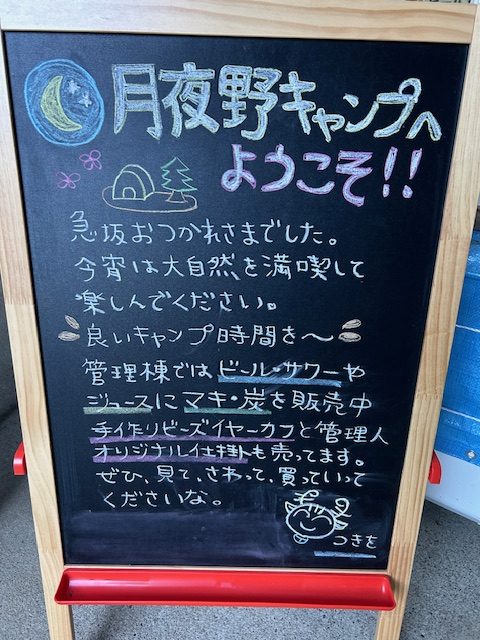 月夜野キャンプへ
ようこそ!!
急坂おつかれさまでした。
今宵は大自然を満喫して
楽しんでください。
良いキャンプ時間を〜
管理棟ではビール・サワーや
ジュースにマキ・炭を販売中
手作りビーズイヤーカフと管理人
オリジナル仕掛トも売ってます。
ぜひ、見て、さわって、買っていって
くださいな。
つきを